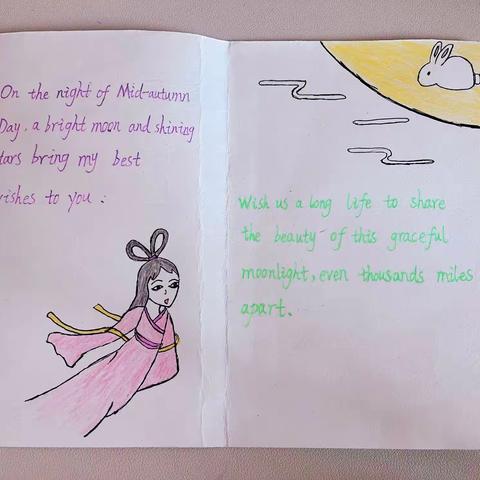 On the night of Mid-autumn
Day, a bright moon and shining
tars bring my best
ishes to you :
Wish us a long life to share
the beauty of this graceful
moonlight, even thousands miles
apart.